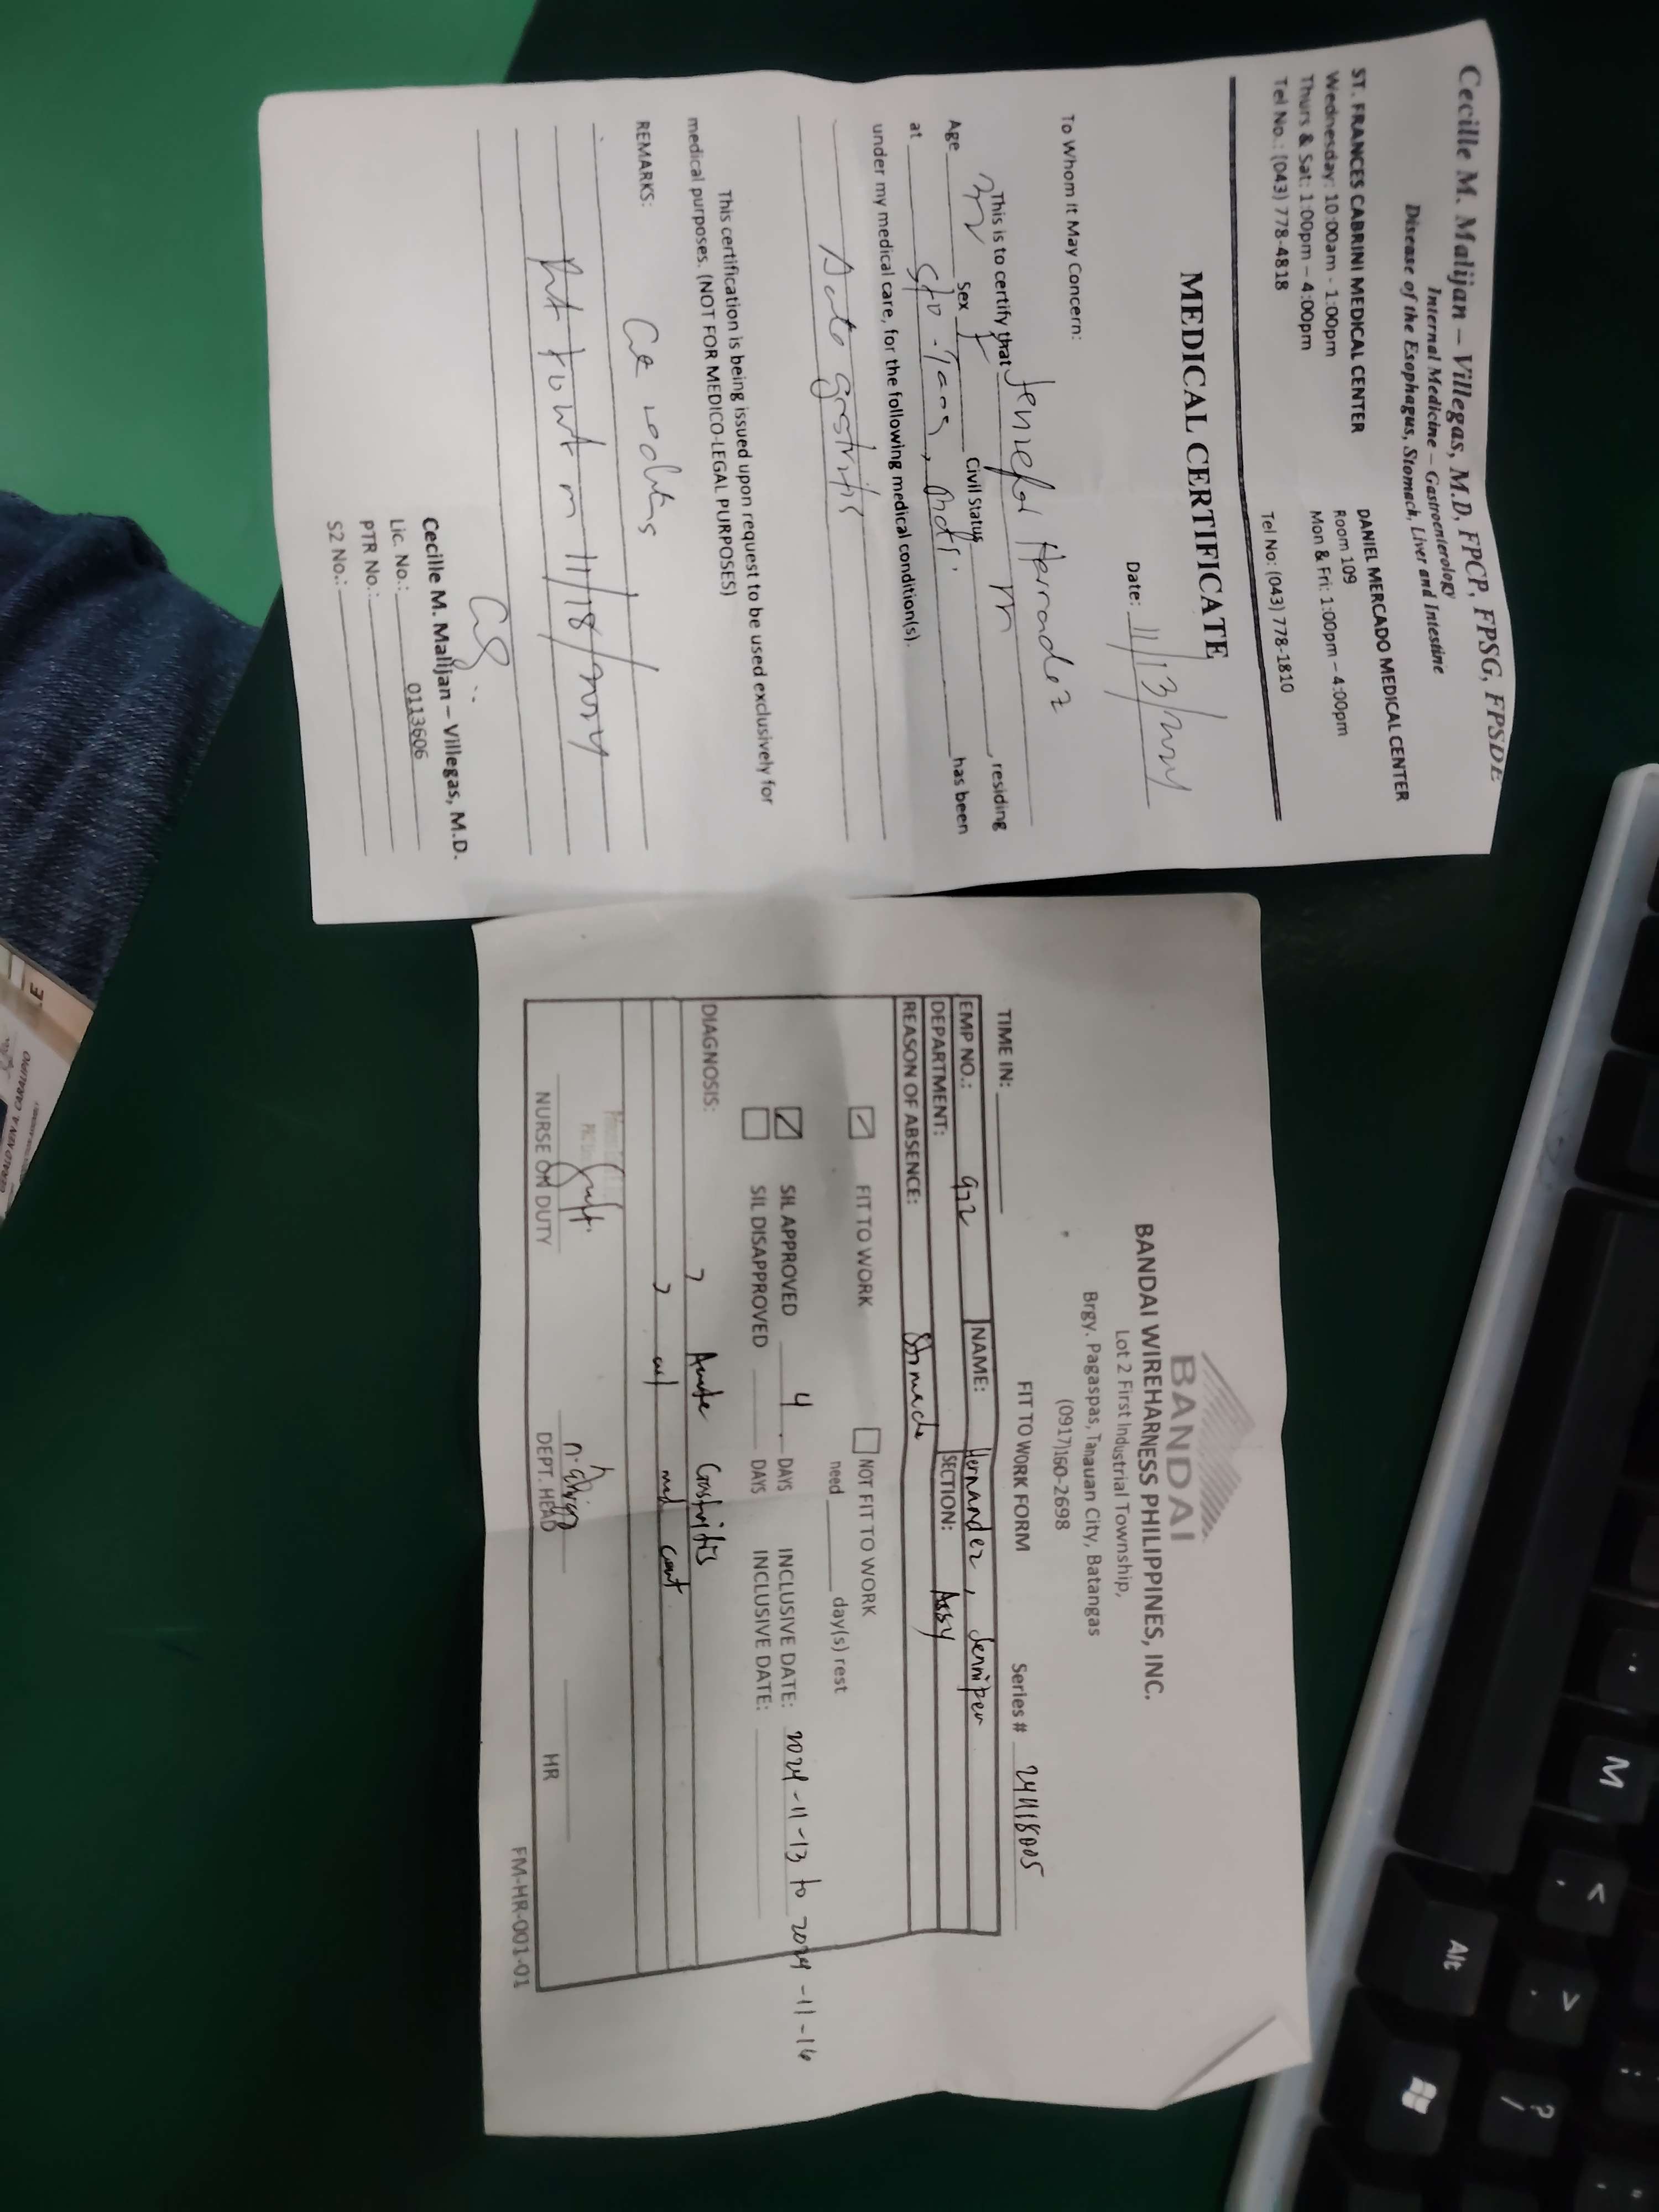 Cecille M. Malijan – Villegas, M.D, FPCP, FPSG, FPSDE
Internal Medicine – Gastroenterology
Disease of the Esophagus, Stomach, Liver and Intestine
ST. FRANCES CABRINI MEDICAL CENTER
Wednesday: 10:00am - 1:00pm
Thurs & Sat: 1:00pm – 4:00pm
Tel No.: (043) 778-4818
DANIEL MERCADO MEDICAL CENTER
Room 109
Mon & Fri: 1:00pm – 4:00pm
Tel No: (043) 778-1810
MEDICAL CERTIFICATE
Date: 11/13/2024
To Whom It May Concern:
This is to certify that Hernandez
Age 32 Sex F Civil Status m, residing
at Sto. , has been
under my medical care, for the following medical condition(s).
gastritis
This certification is being issued upon request to be used exclusively for
medical purposes. (NOT FOR MEDICO-LEGAL PURPOSES)
REMARKS:
11/18/2024
Cecille M. Malijan – Villegas, M.D.
Lic. No.: 0113606
PTR No.:
S2 No.:
BANDAI
BANDAI WIREHARNESS PHILIPPINES, INC.
Lot 2 First Industrial Township,
Brgy. Pagaspas, Tanauan City, Batangas
(0917)160-2698
FIT TO WORK FORM
TIME IN: Series # 24118005
EMP NO.: 972 NAME: Hernandez, Jennifer
DEPARTMENT: SECTION: Assy
REASON OF ABSENCE:
FIT TO WORK NOT FIT TO WORK
need day(s) rest
SIL APPROVED 4 DAYS INCLUSIVE DATE: 2024-11-13 to 2024-11-16
SIL DISAPPROVED DAYS INCLUSIVE DATE:
DIAGNOSIS: Acute Gastritis
w/ med cert
NURSE ON DUTY DEPT. HEAD HR
FM-HR-001-01
M
Alt